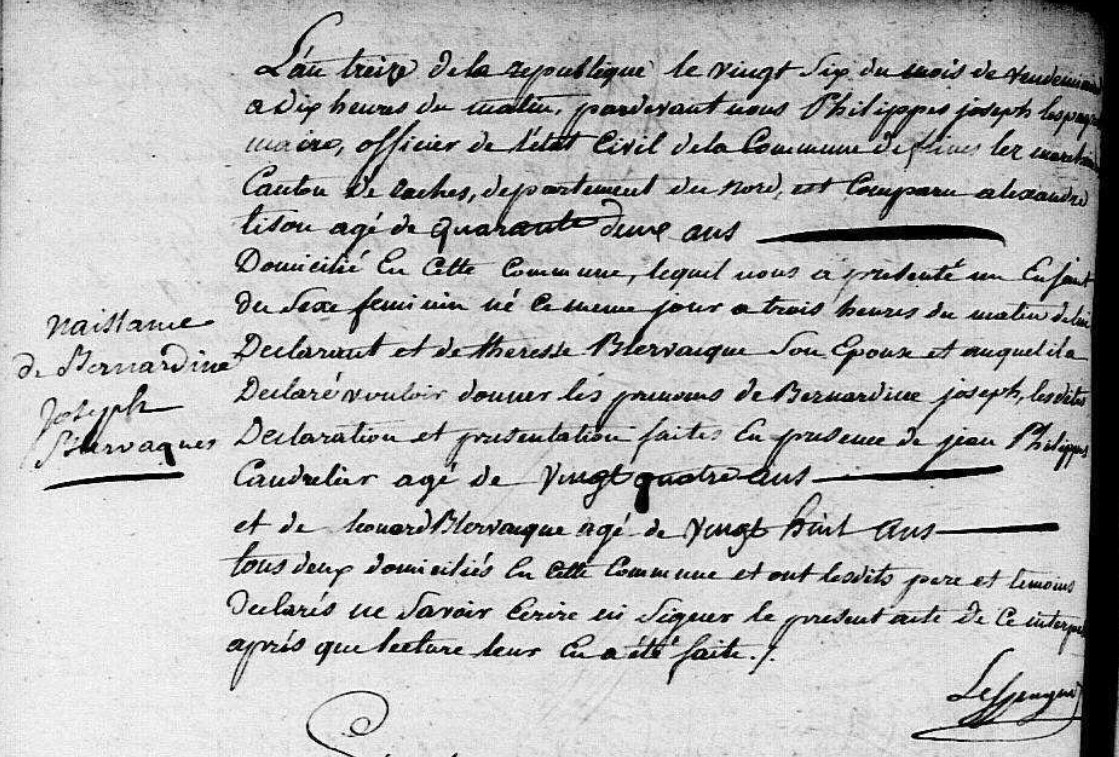 L'an treize de la republique le vingt six du mois de vendemiai
a dix heures du matin, pardevant nous Philippes joseph lespagn
maire, officier de l'état Civil de la Commune de flines lez marchie
Canton de raches, departement du nord, est Comparu alexandre
tison agé de quarante deux ans
Domicilié En Cette Commune, lequel nous a presenté un Enfant
du Sexe feminin né Ce meme jour a trois heures du matin de lui
Declarant et de theresse Blervacque Son Epouse et auquel il a
Declaré vouloir donner les prenoms de Bernardine joseph, lesdites
Declaration et presentation faites En presence de jean Philippes
Caudrelier agé de vingt quatre ans
et de leonard Blervacque agé de vingt huit ans
tous deux domiciliés En Cette Commune et ont lesdits pere et temoins
Declarés ne Savoir Ecrire ni Signer le present acte de Ce interpe
après que lecture leur En a été faite ./.
naissance
de Bernardine
Joseph
Blervaques
Lespagne